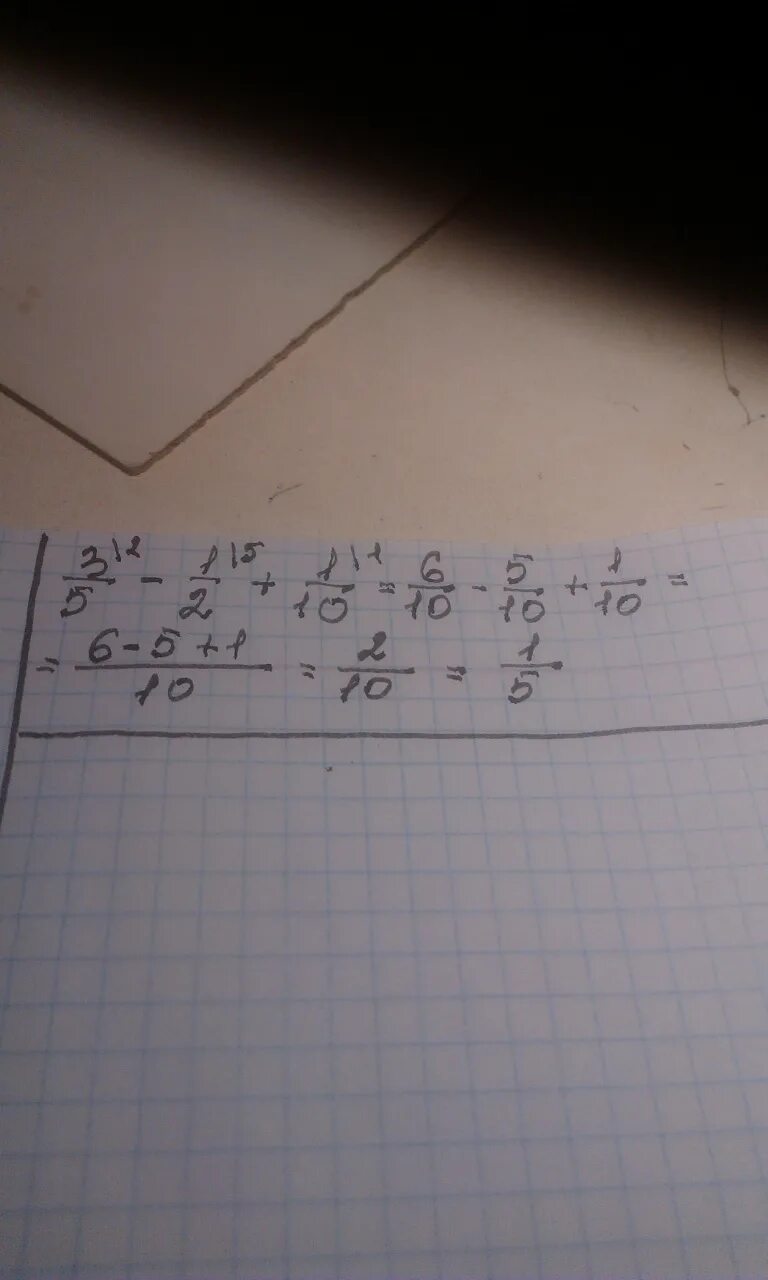 3/5\2 - 1/2\5 + 1/10\1 = 6/10 - 5/10 + 1/10 =
= (6-5+1)/10 = 2/10 = 1/5